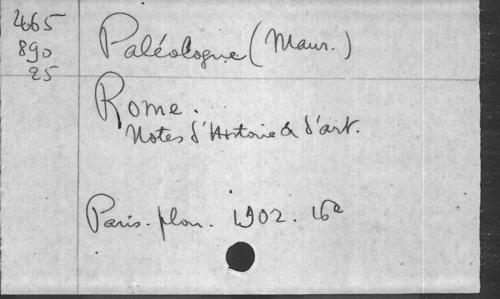 465
890
25
Paléologue (Maur.)
Rome.
Notes d'Histoire & d'art.
Paris. plon. 1902. 16°